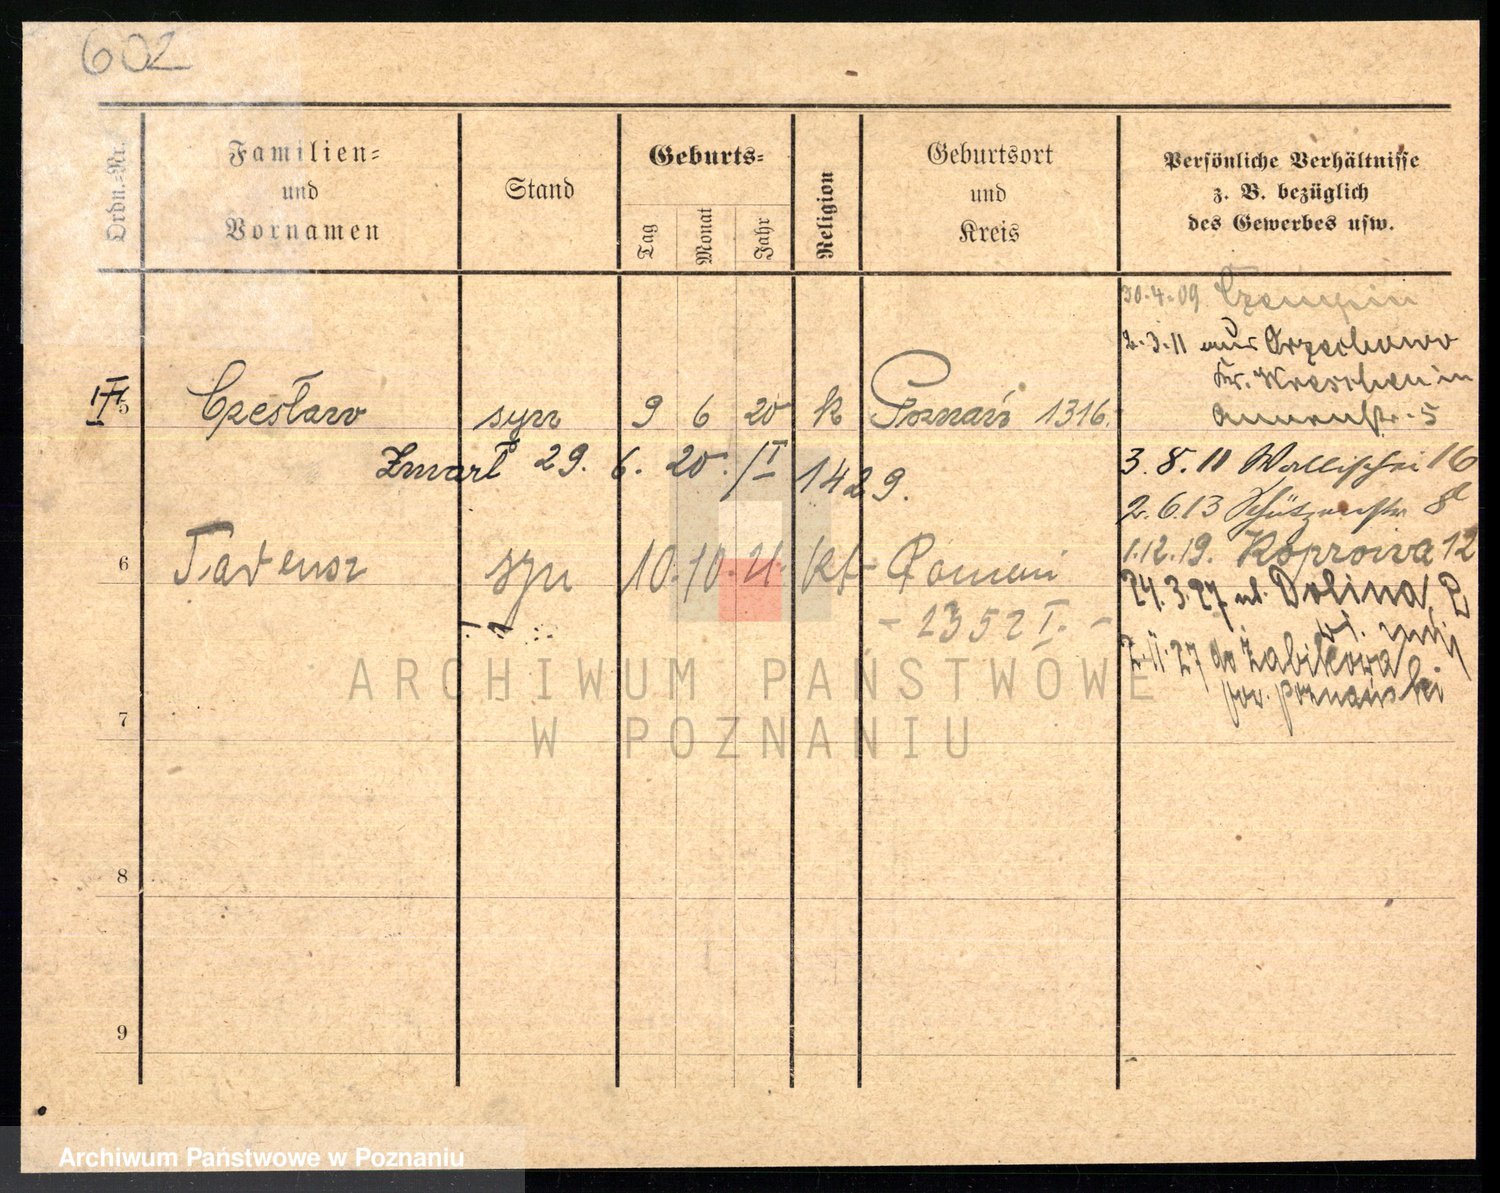 602
Ordn.=Nr.
Familien=
und
Vornamen
Stand
Geburts=
Tag
Monat
Jahr
Religion
Geburtsort
und
Kreis
Persönliche Verhältnisse
z. B. bezüglich
des Gewerbes usw.
30.4.09 Czempin
2.3.11 aus Orzechowo
Kr. Wreschen in
Annenstr. 5
5 Czesław syn 9 6 20 k Poznań 1316.
Zmarł 29. 6. 20. / I 1429.
3. 8. 11 Wallischei 16
2.6.13 Schützenstr 8
6 Tadeusz syn 10. 10. 21. kt. Poznań
- 1352 I. -
1.12.19. Kopowa 12
24.3.27. ul. Dolina
2.11.27 do Żabikowa
pow. poznański
7
8
9
ARCHIWUM PAŃSTWOWE
W POZNANIU
Archiwum Państwowe w Poznaniu